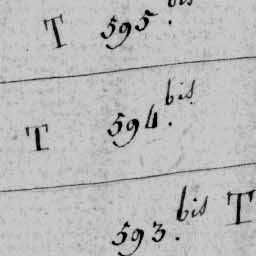 T 595. bis
T 594. bis
593. bis T